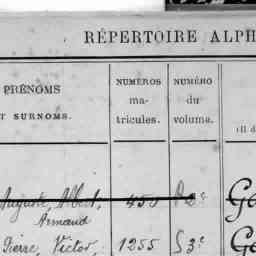 RÉPERTOIRE ALPH
PRÉNOMS
T SURNOMS.
NUMÉROS
ma-
tricules.
NUMÉRO
du
volume.
Auguste, Albert, 450 2e
Armand
Pierre, Victor, 1255 S 3e